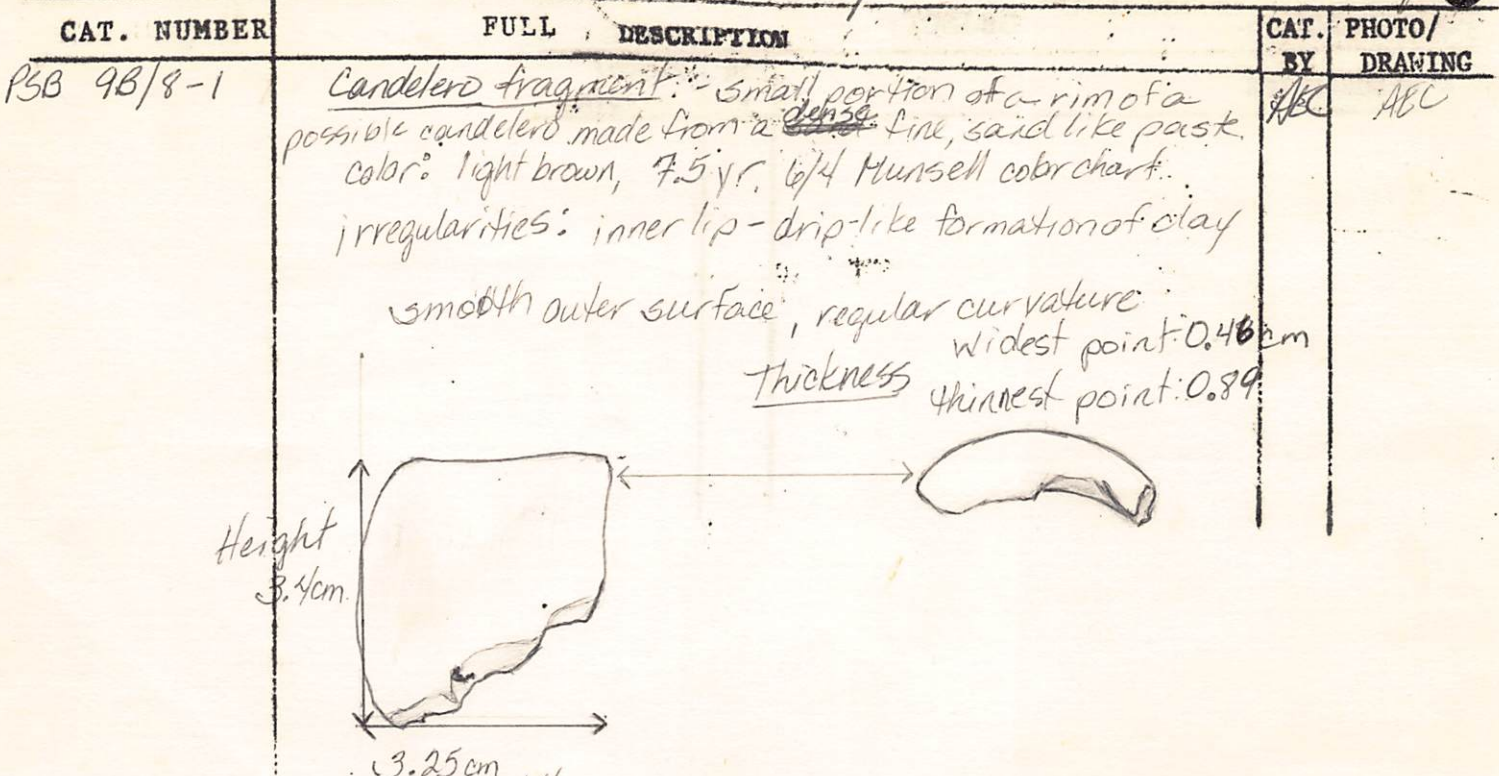 CAT. NUMBER FULL DESCRIPTION CAT. BY PHOTO/ DRAWING
PSB 9B/8-1 Candelero fragment: - small portion of a rim of a AEC AEC
possible candelero made from a dense fine, sand like paste.
color: light brown, 7.5 yr. 6/4 Munsell color chart.
irregularities: inner lip - drip-like formation of clay
smooth outer surface, regular curvature
widest point: 0.46 cm
Thickness
thinnest point: 0.89
Height
3.4cm.
3.25cm